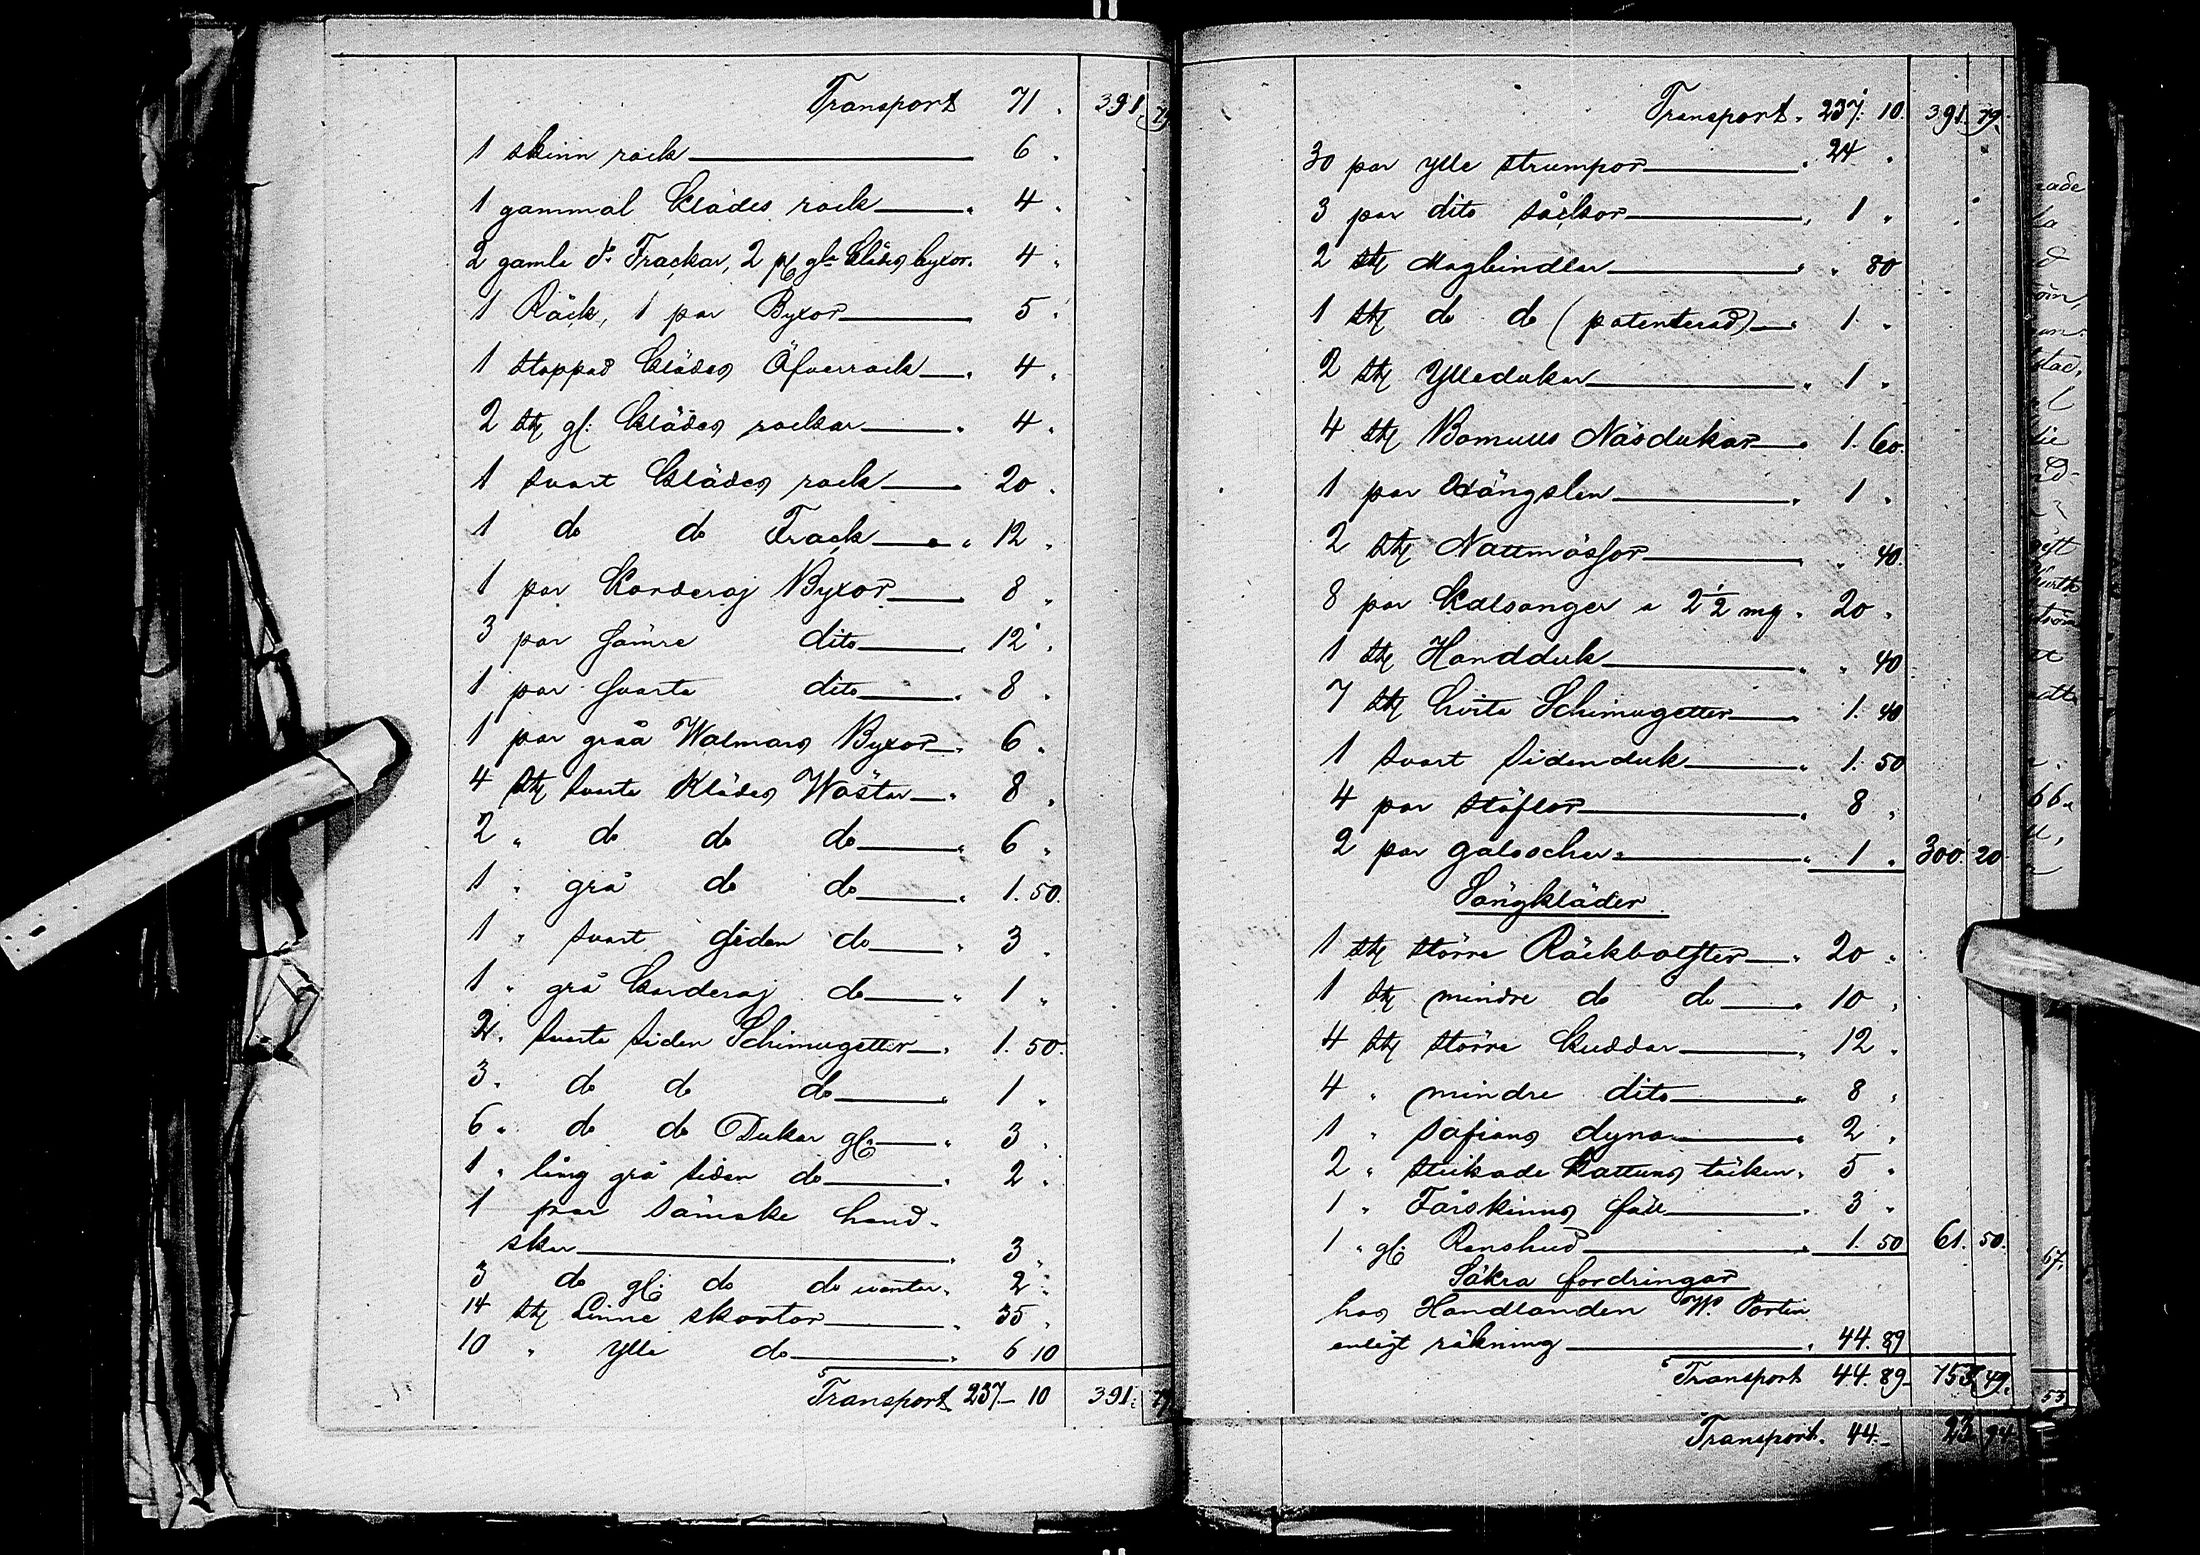 Transport 71 . 391. 79
1 skinn rock 6 .
1 gammal Klädes rock 4 .
2 gamla do Frackar, 2 p gla Klädes byxor 4 .
1 Räck, 1 par Byxor 5 .
1 stoppad Klädes Öfverrock 4 .
2 st gl: Klädes rockar 4 .
1 svart Klädes rock 20 .
1 do do Frack 12 .
1 par Korderoj Byxor 8 .
3 par sämre dito 12 .
1 par svarta dito 8 .
1 par gråa Walmars Byxor 6 .
4 st svarta Klädes Wästar 8 .
2 " do do do 6 .
1 " grå do do 1. 50.
1 " svart siden do 3 .
1 " grå Korderoj do 1 "
2 " svarta siden Schimugetter 1. 50.
3 " do do do 1 "
6 " do do Dukar gl: 3 .
1 " lång grå siden do 2 .
1 par sämske hand-
skar 3 "
3 do gl: do do wantar 2 "
14 st Linne skortor 35 .
10 " ylle do 6 10
Transport 237– 10 391. 79
Transport. 237. 10. 391. 79.
30 par ylle strumpor 24 "
3 par dito såckor 1 "
2 st Magbindlar " 80
1 st do do (patenterad) 1 "
2 st Ylledukar 1 "
4 st Bomuls Näsdukar 1. 60.
1 par Hängslen 1 "
2 st Nattmössor " 40.
8 par Kalsonger a 2 1/2 mg. 20 "
1 st Handduk " 40
7 st hvita Schimugetter 1. 40
1 svart sidenduk 1. 50
4 par stöflor 8 "
2 par galoscher 1 " 300. 20
Sängkläder
1 st större Räckbolster 20 "
1 st mindre do do 10 "
4 st större Kuddar 12 "
4 " mindre dito 8 "
1 " safians dyna 2 "
2 " stickade Kattuns täcken 5 "
1 " Fårskinns fäll 3 "
1 " gl: Renshud 1. 50 61. 50.
Säkra fordringar
hos Handlanden W. Portin
enligt räkning 44. 89
Transport 44. 89– 753. 49.
Transport. 44.– 23 94